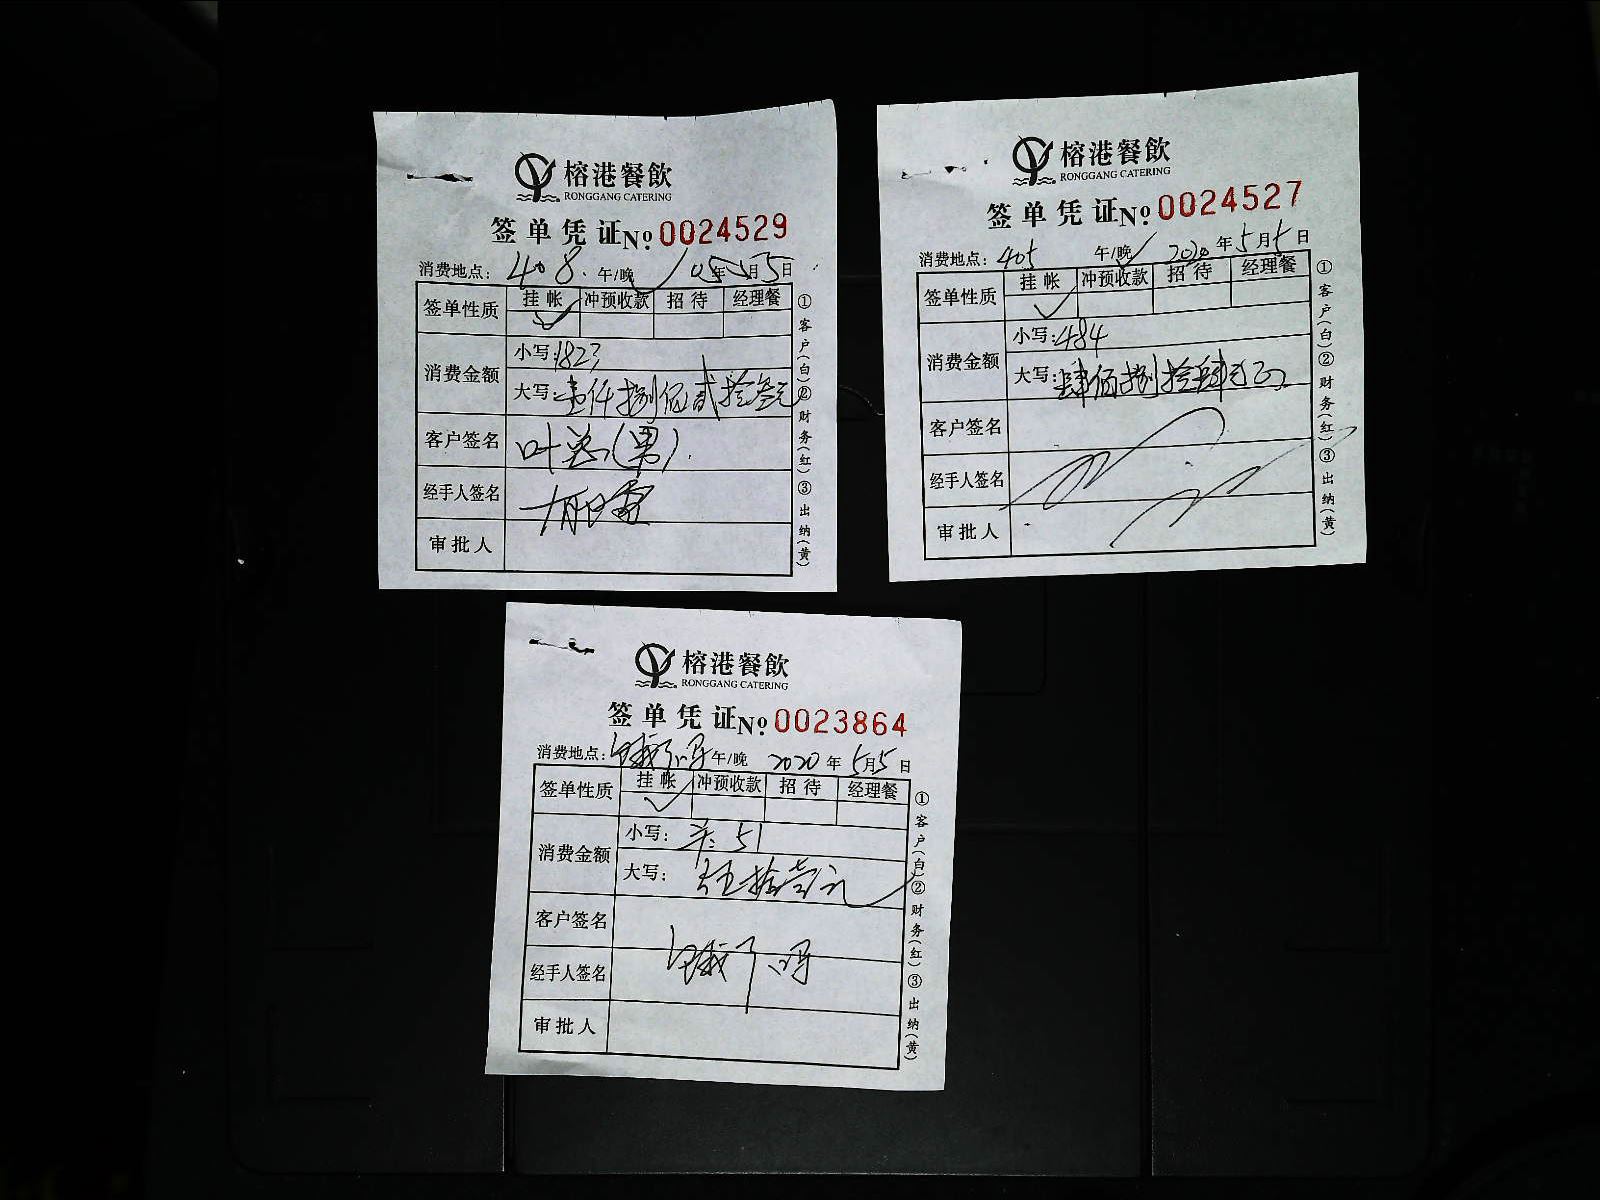 榕港餐飲
RONGGANG CATERING
签单凭证 No 0024529
消费地点：408 午/晚 05年5月5日
签单性质 挂帐 冲预收款 招待 经理餐
消费金额
小写：1823
大写：壹仟捌佰贰拾叁元
客户签名 叶总（男）
经手人签名
审批人
①客户（白）②财务（红）③出纳（黄）
榕港餐飲
RONGGANG CATERING
签单凭证 No 0024527
消费地点：405 午/晚 2020年5月5日
签单性质 挂帐 冲预收款 招待 经理餐
消费金额
小写：484
大写：肆佰捌拾肆元正
客户签名
经手人签名
审批人
①客户（白）②财务（红）③出纳（黄）
榕港餐飲
RONGGANG CATERING
签单凭证 No 0023864
消费地点：饿了吗 午/晚 2020年5月5日
签单性质 挂帐 冲预收款 招待 经理餐
消费金额
小写：51
大写：伍拾壹元
客户签名
饿了吗
经手人签名
审批人
①客户（白）②财务（红）③出纳（黄）